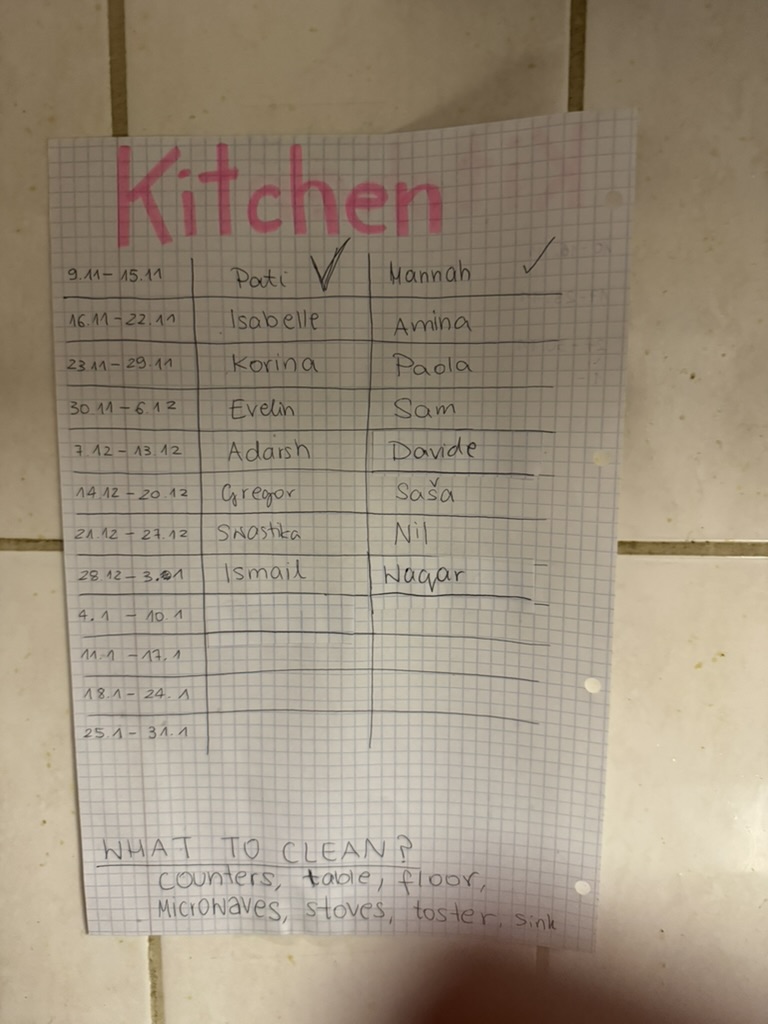 Kitchen
9.11 - 15.11 Pati ✓ Hannah ✓
16.11 - 22.11 Isabelle Amina
23.11 - 29.11 Korina Paola
30.11 - 6.12 Evelin Sam
7.12 - 13.12 Adarsh Davide
14.12 - 20.12 Gregor Saša
21.12 - 27.12 Swastika Nil
28.12 - 3.01 Ismail Waqar
4.1 - 10.1
11.1 - 17.1
18.1 - 24.1
25.1 - 31.1
WHAT TO CLEAN?
counters, table, floor,
Microwaves, stoves, toster, sink